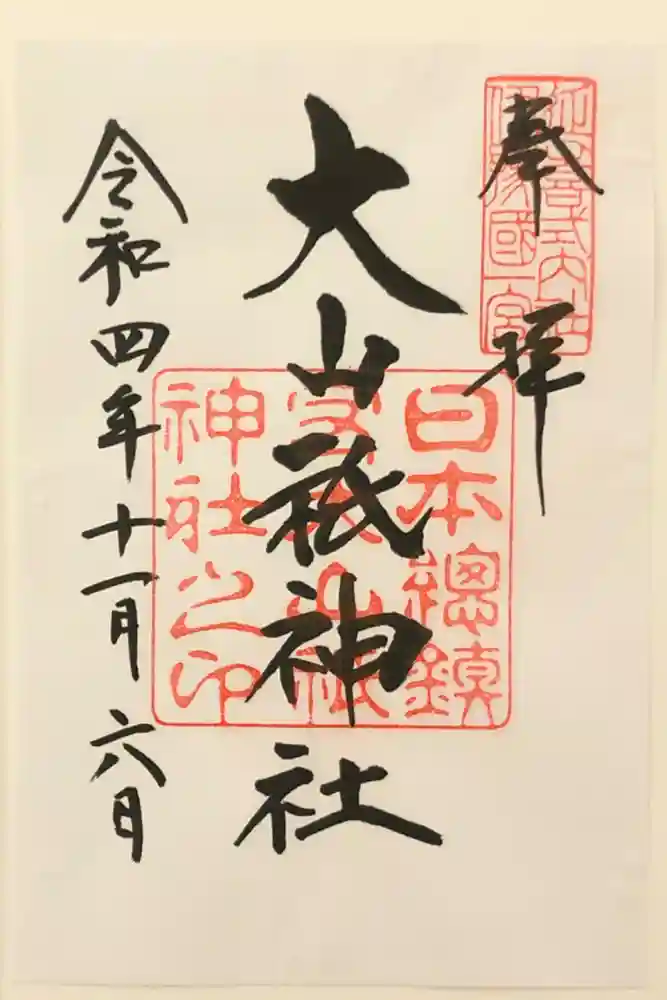 奉拝
延喜式内社
伊豫國一宮
大山祇神社
日本總鎮
守大山祇
神社之印
令和四年十一月六日